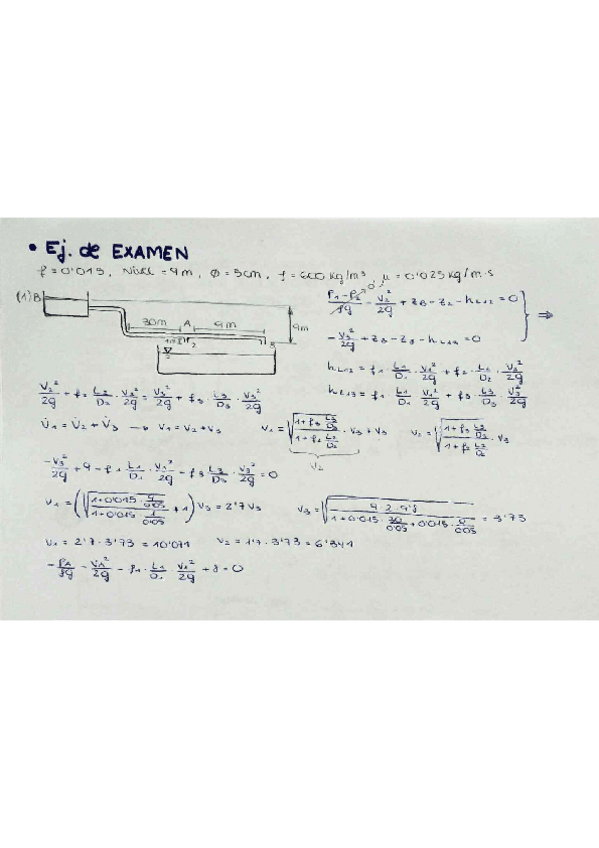 • Ej. de EXAMEN
f = 0'015, Nivel = 9m, Ø = 5cm, ρ = 600 kg/m³, μ = 0'025 kg/m·s
(1) B 30m A 9m 9m
1m 2 3
(P1 - P2)/ρg - V2²/2g + zB - z2 - hL12 = 0
- V3²/2g + zB - z3 - hL13 = 0 ⇒
hL12 = f1 · L1/D1 · V1²/2g + f2 · L2/D2 · V2²/2g
hL13 = f1 · L1/D1 · V1²/2g + f3 · L3/D3 · V3²/2g
V2²/2g + f2 · L2/D2 · V2²/2g = V3²/2g + f3 · L3/D3 · V3²/2g
V̇1 = V̇2 + V̇3 → V1 = V2 + V3 V1 = √((1 + f3 L3/D3)/(1 + f2 L2/D2)) · V3 + V3 V2 = √((1 + f3 L3/D3)/(1 + f2 L2/D2)) · V3
V2
- V3²/2g + 9 - f1 · L1/D1 · V1²/2g - f3 L3/D3 · V3²/2g = 0
V1 = (√((1 + 0'015 · 9/0'05)/(1 + 0'015 · 1/0'05)) + 1) V3 = 2'7 V3 V3 = √(9·2·9'8/(1 + 0'015 · 30/0'05 + 0'015 · 9/0'05)) = 3'73
V1 = 2'7 · 3'73 = 10'071 V2 = 1'7 · 3'73 = 6'341
- P1/ρg - V1²/2g - f1 · L1/D1 · V1²/2g + 8 = 0